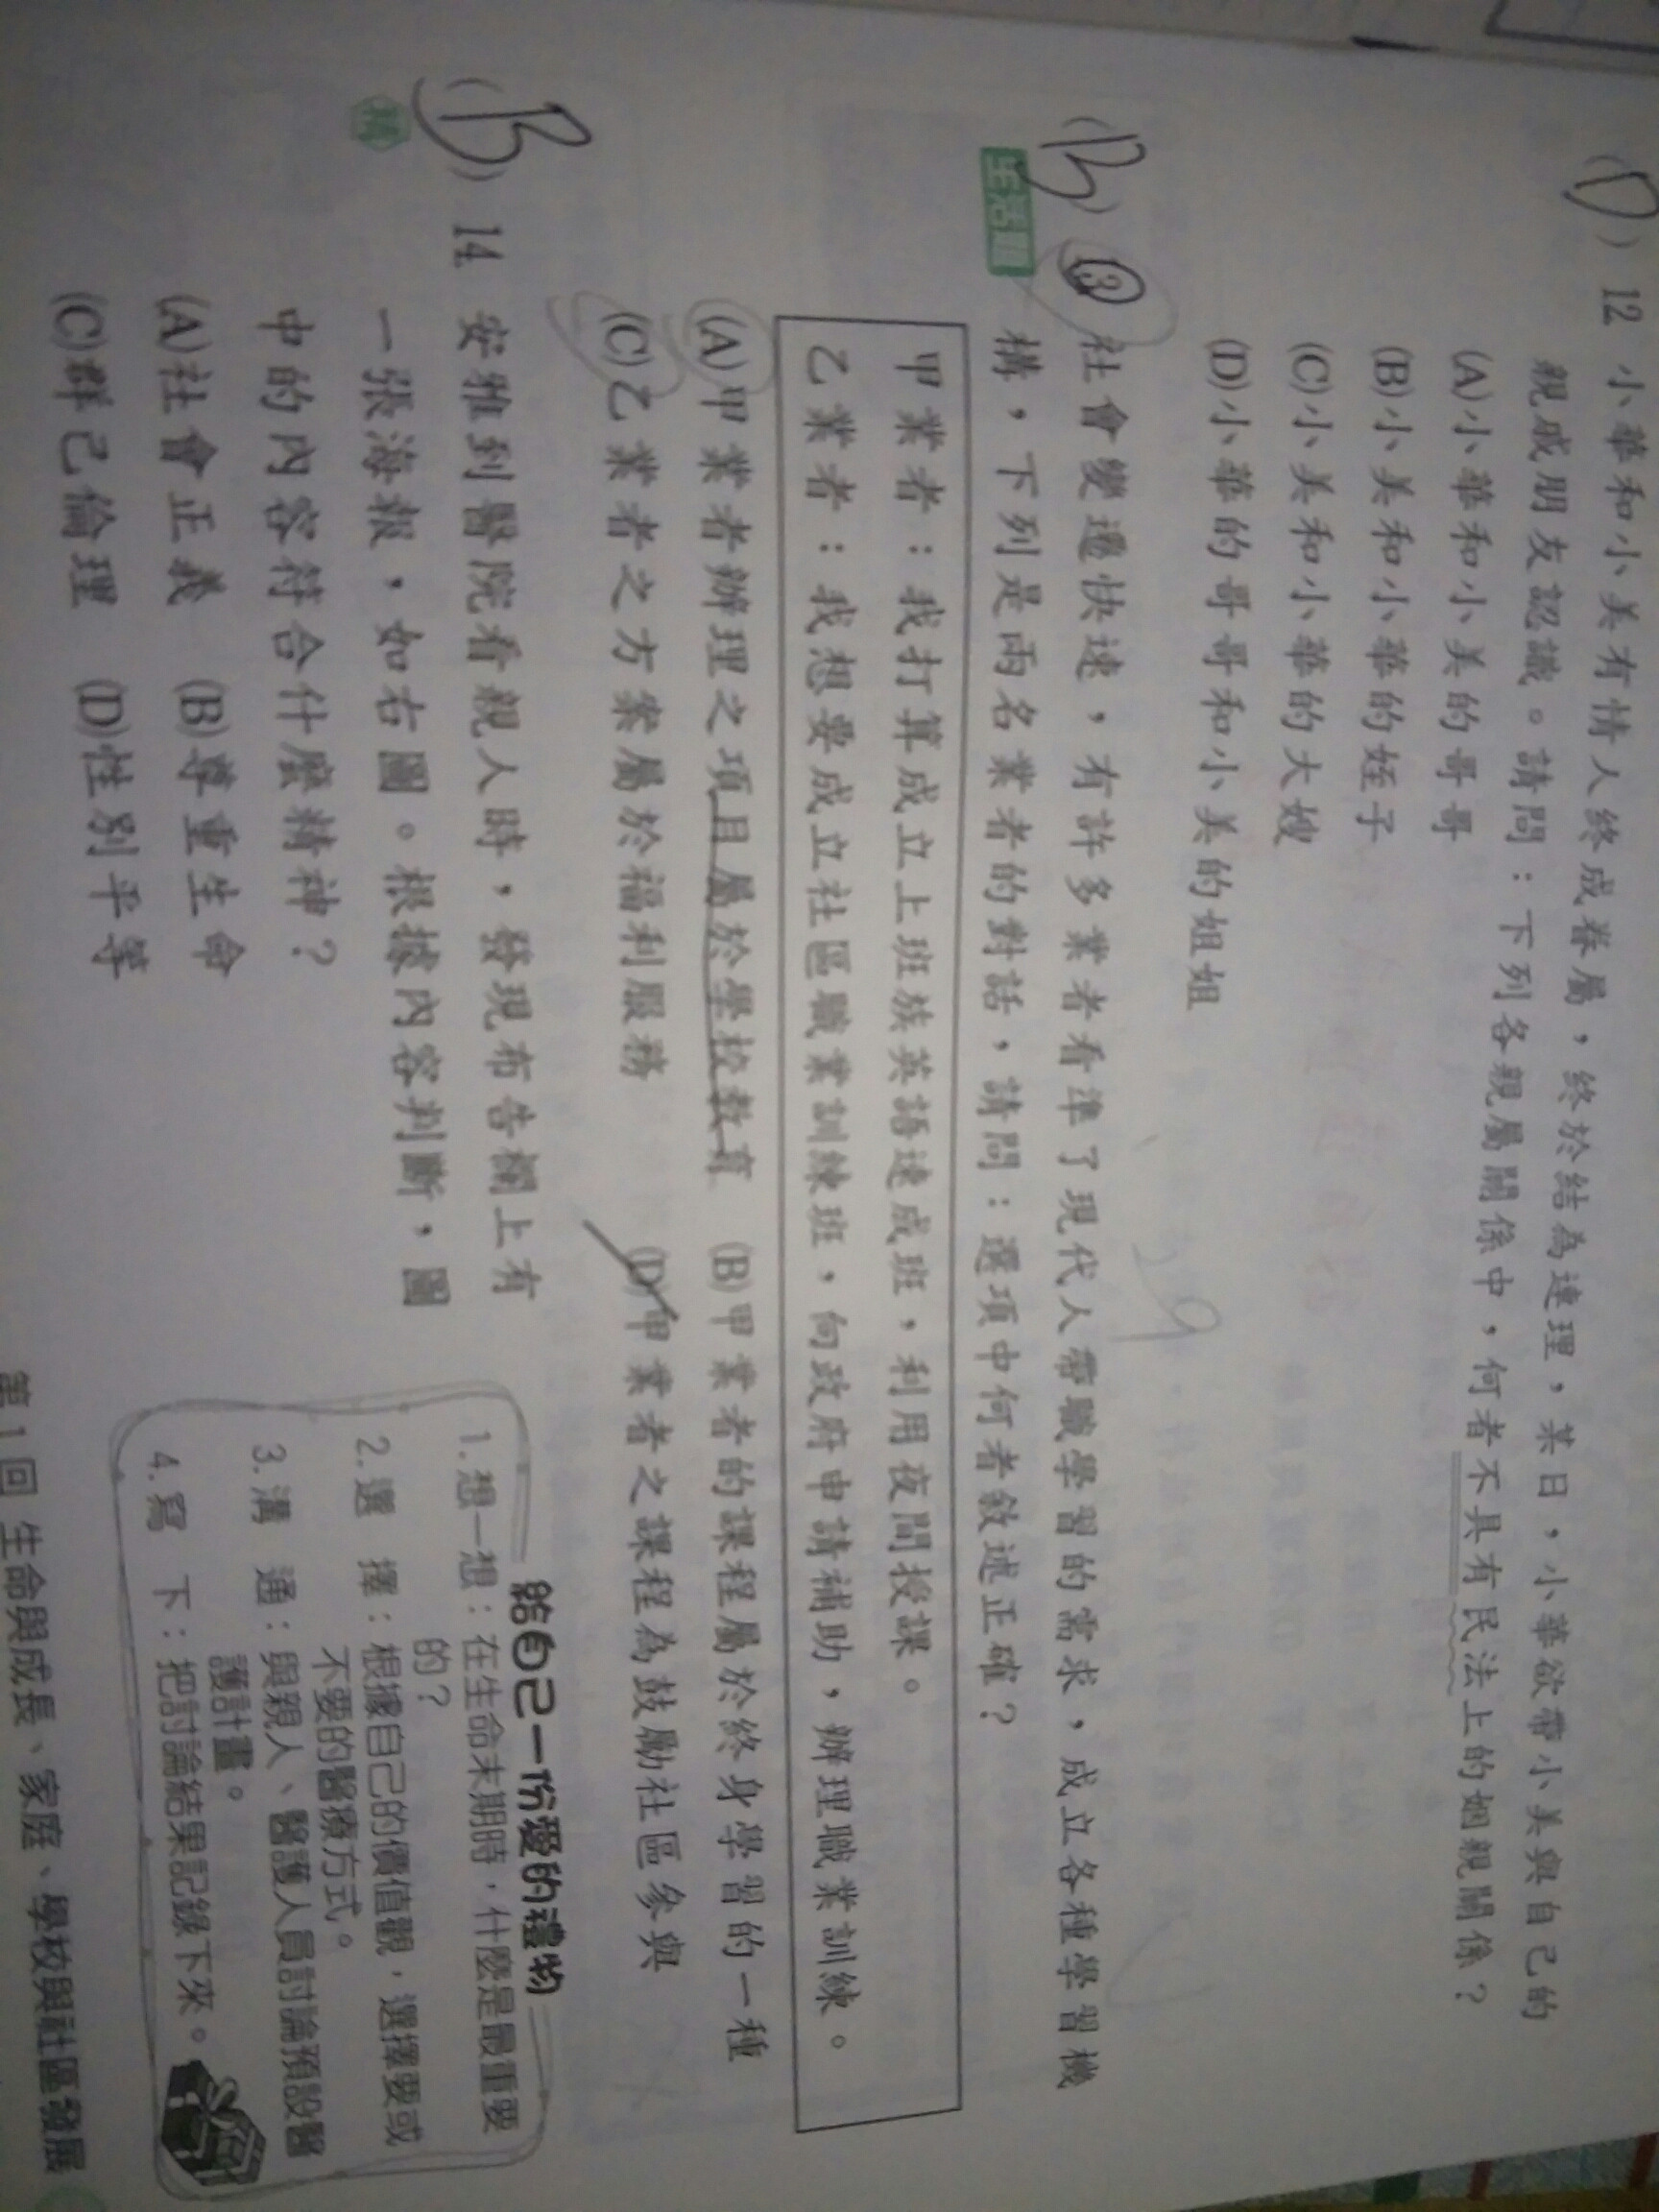 (D) 12 小華和小美有情人終成眷屬，終於結為連理，某日，小華欲帶小美與自己的
親戚朋友認識。請問：下列各親屬關係中，何者不具有民法上的姻親關係？
(A)小華和小美的哥哥
(B)小美和小華的姪子
(C)小美和小華的大嫂
(D)小華的哥哥和小美的姐姐
(B) 13 社會變遷快速，有許多業者看準了現代人帶職學習的需求，成立各種學習機
構，下列是兩名業者的對話，請問：選項中何者敘述正確？
甲業者：我打算成立上班族英語速成班，利用夜間授課。
乙業者：我想要成立社區職業訓練班，向政府申請補助，辦理職業訓練。
(A)甲業者辦理之項目屬於學校教育 (B)甲業者的課程屬於終身學習的一種
(C)乙業者之方案屬於福利服務 (D)甲業者之課程為鼓勵社區參與
(B) 14 安雅到醫院看親人時，發現布告欄上有
一張海報，如右圖。根據內容判斷，圖
中的內容符合什麼精神？
(A)社會正義 (B)尊重生命
(C)群己倫理 (D)性別平等
給自己一份愛的禮物
1.想一想：在生命末期時，什麼是最重要
的？
2.選 擇：根據自己的價值觀，選擇要或
不要的醫療方式。
3.溝 通：與親人、醫護人員討論預設醫
護計畫。
4.寫 下：把討論結果記錄下來。
第1回 生命與成長、家庭、學校與社區發展